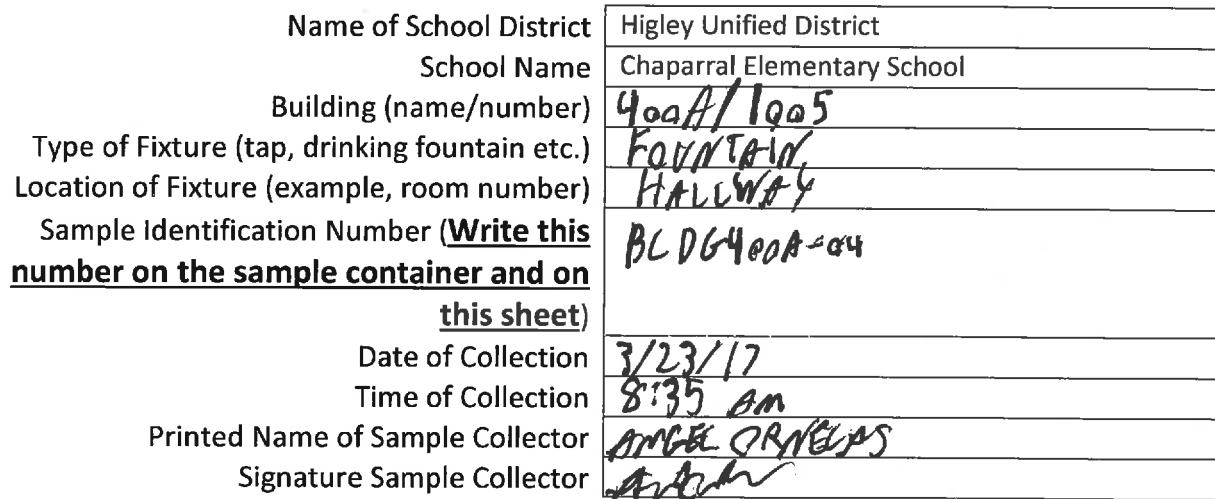 Name of School District Higley Unified District
School Name Chaparral Elementary School
Building (name/number) 400A/1005
Type of Fixture (tap, drinking fountain etc.) FOUNTAIN
Location of Fixture (example, room number) HALLWAY
Sample Identification Number (Write this BLDG400A-04
number on the sample container and on
this sheet)
Date of Collection 3/23/17
Time of Collection 8:35 AM
Printed Name of Sample Collector ANGEL ORNELAS
Signature Sample Collector